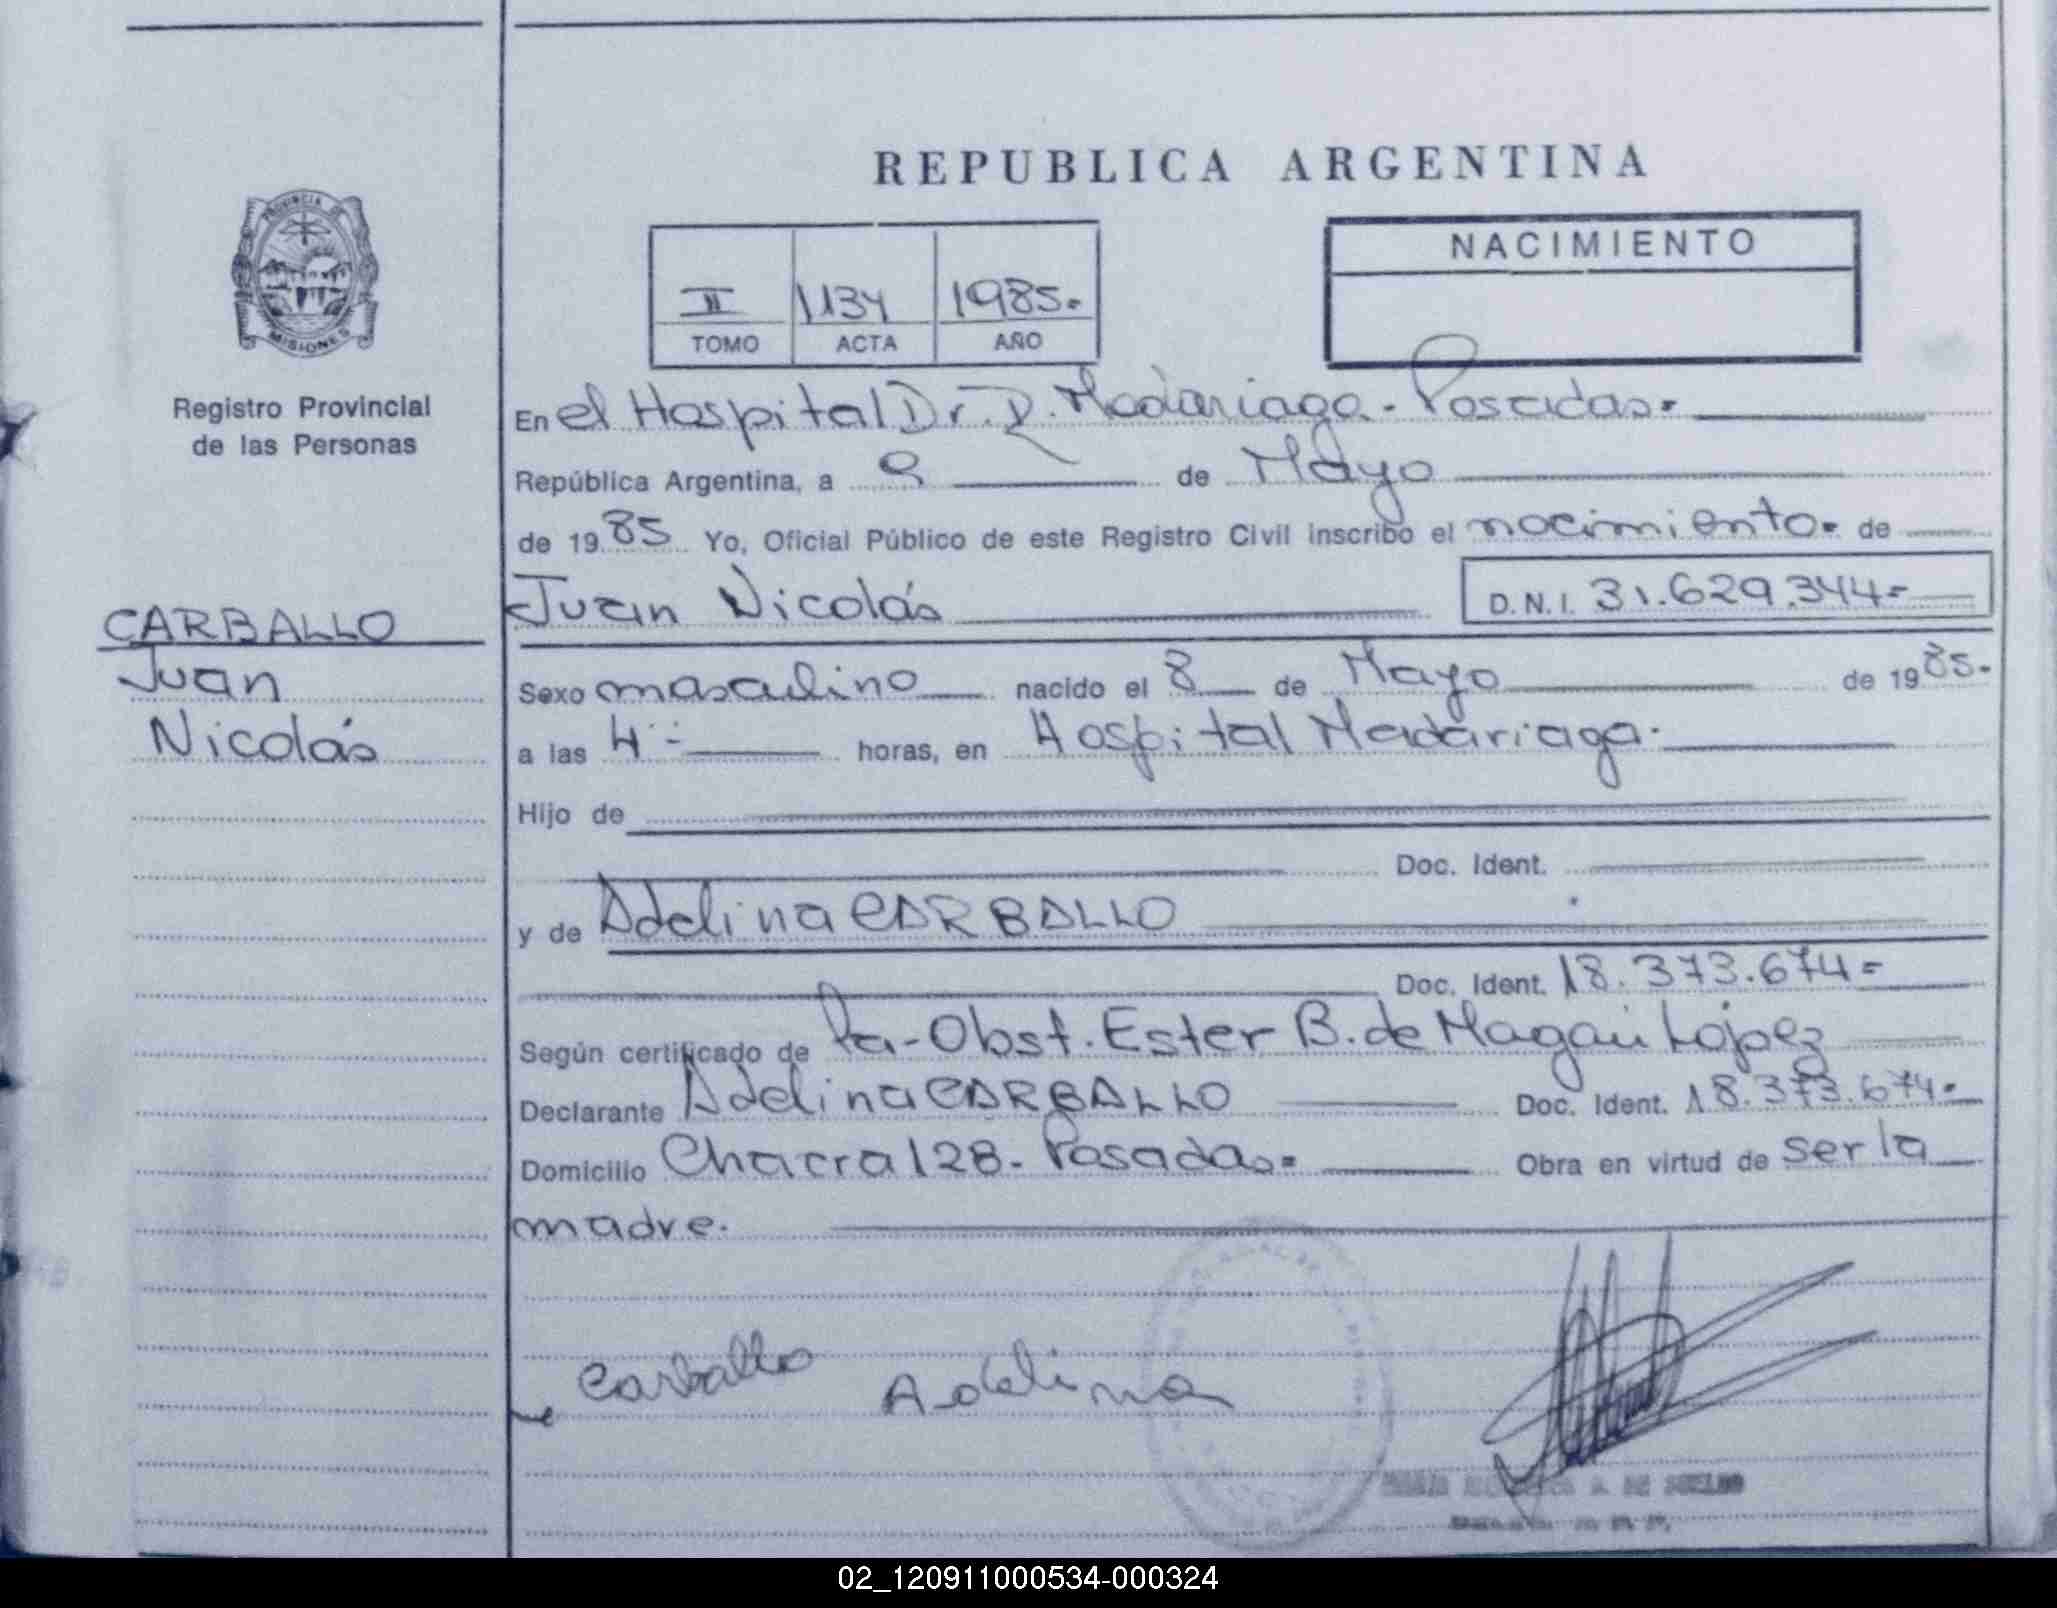 REPUBLICA ARGENTINA
PROVINCIA DE
MISIONES
Registro Provincial
de las Personas
II 1134 1985.
TOMO ACTA AÑO
NACIMIENTO
En el Hospital Dr. R. Madariaga - Posadas.
República Argentina, a de Mayo
de 1985 Yo, Oficial Público de este Registro Civil inscribo el nacimiento. de
Juan Nicolás D.N.I. 31.629.344=
CARBALLO
Juan
Nicolás
Sexo masculino nacido el 8 de Mayo de 1985.
a las 4 horas, en Hospital Madariaga.
Hijo de
Doc. Ident.
y de Adelina CARBALLO
Doc. Ident. 18.373.674=
Según certificado de Obst. Ester B. de López
Declarante Adelina CARBALLO Doc. Ident. 18.373.674.
Domicilio Chacra 128 - Posadas. Obra en virtud de ser la
madre.
Carballo Adelina
02_120911000534-000324